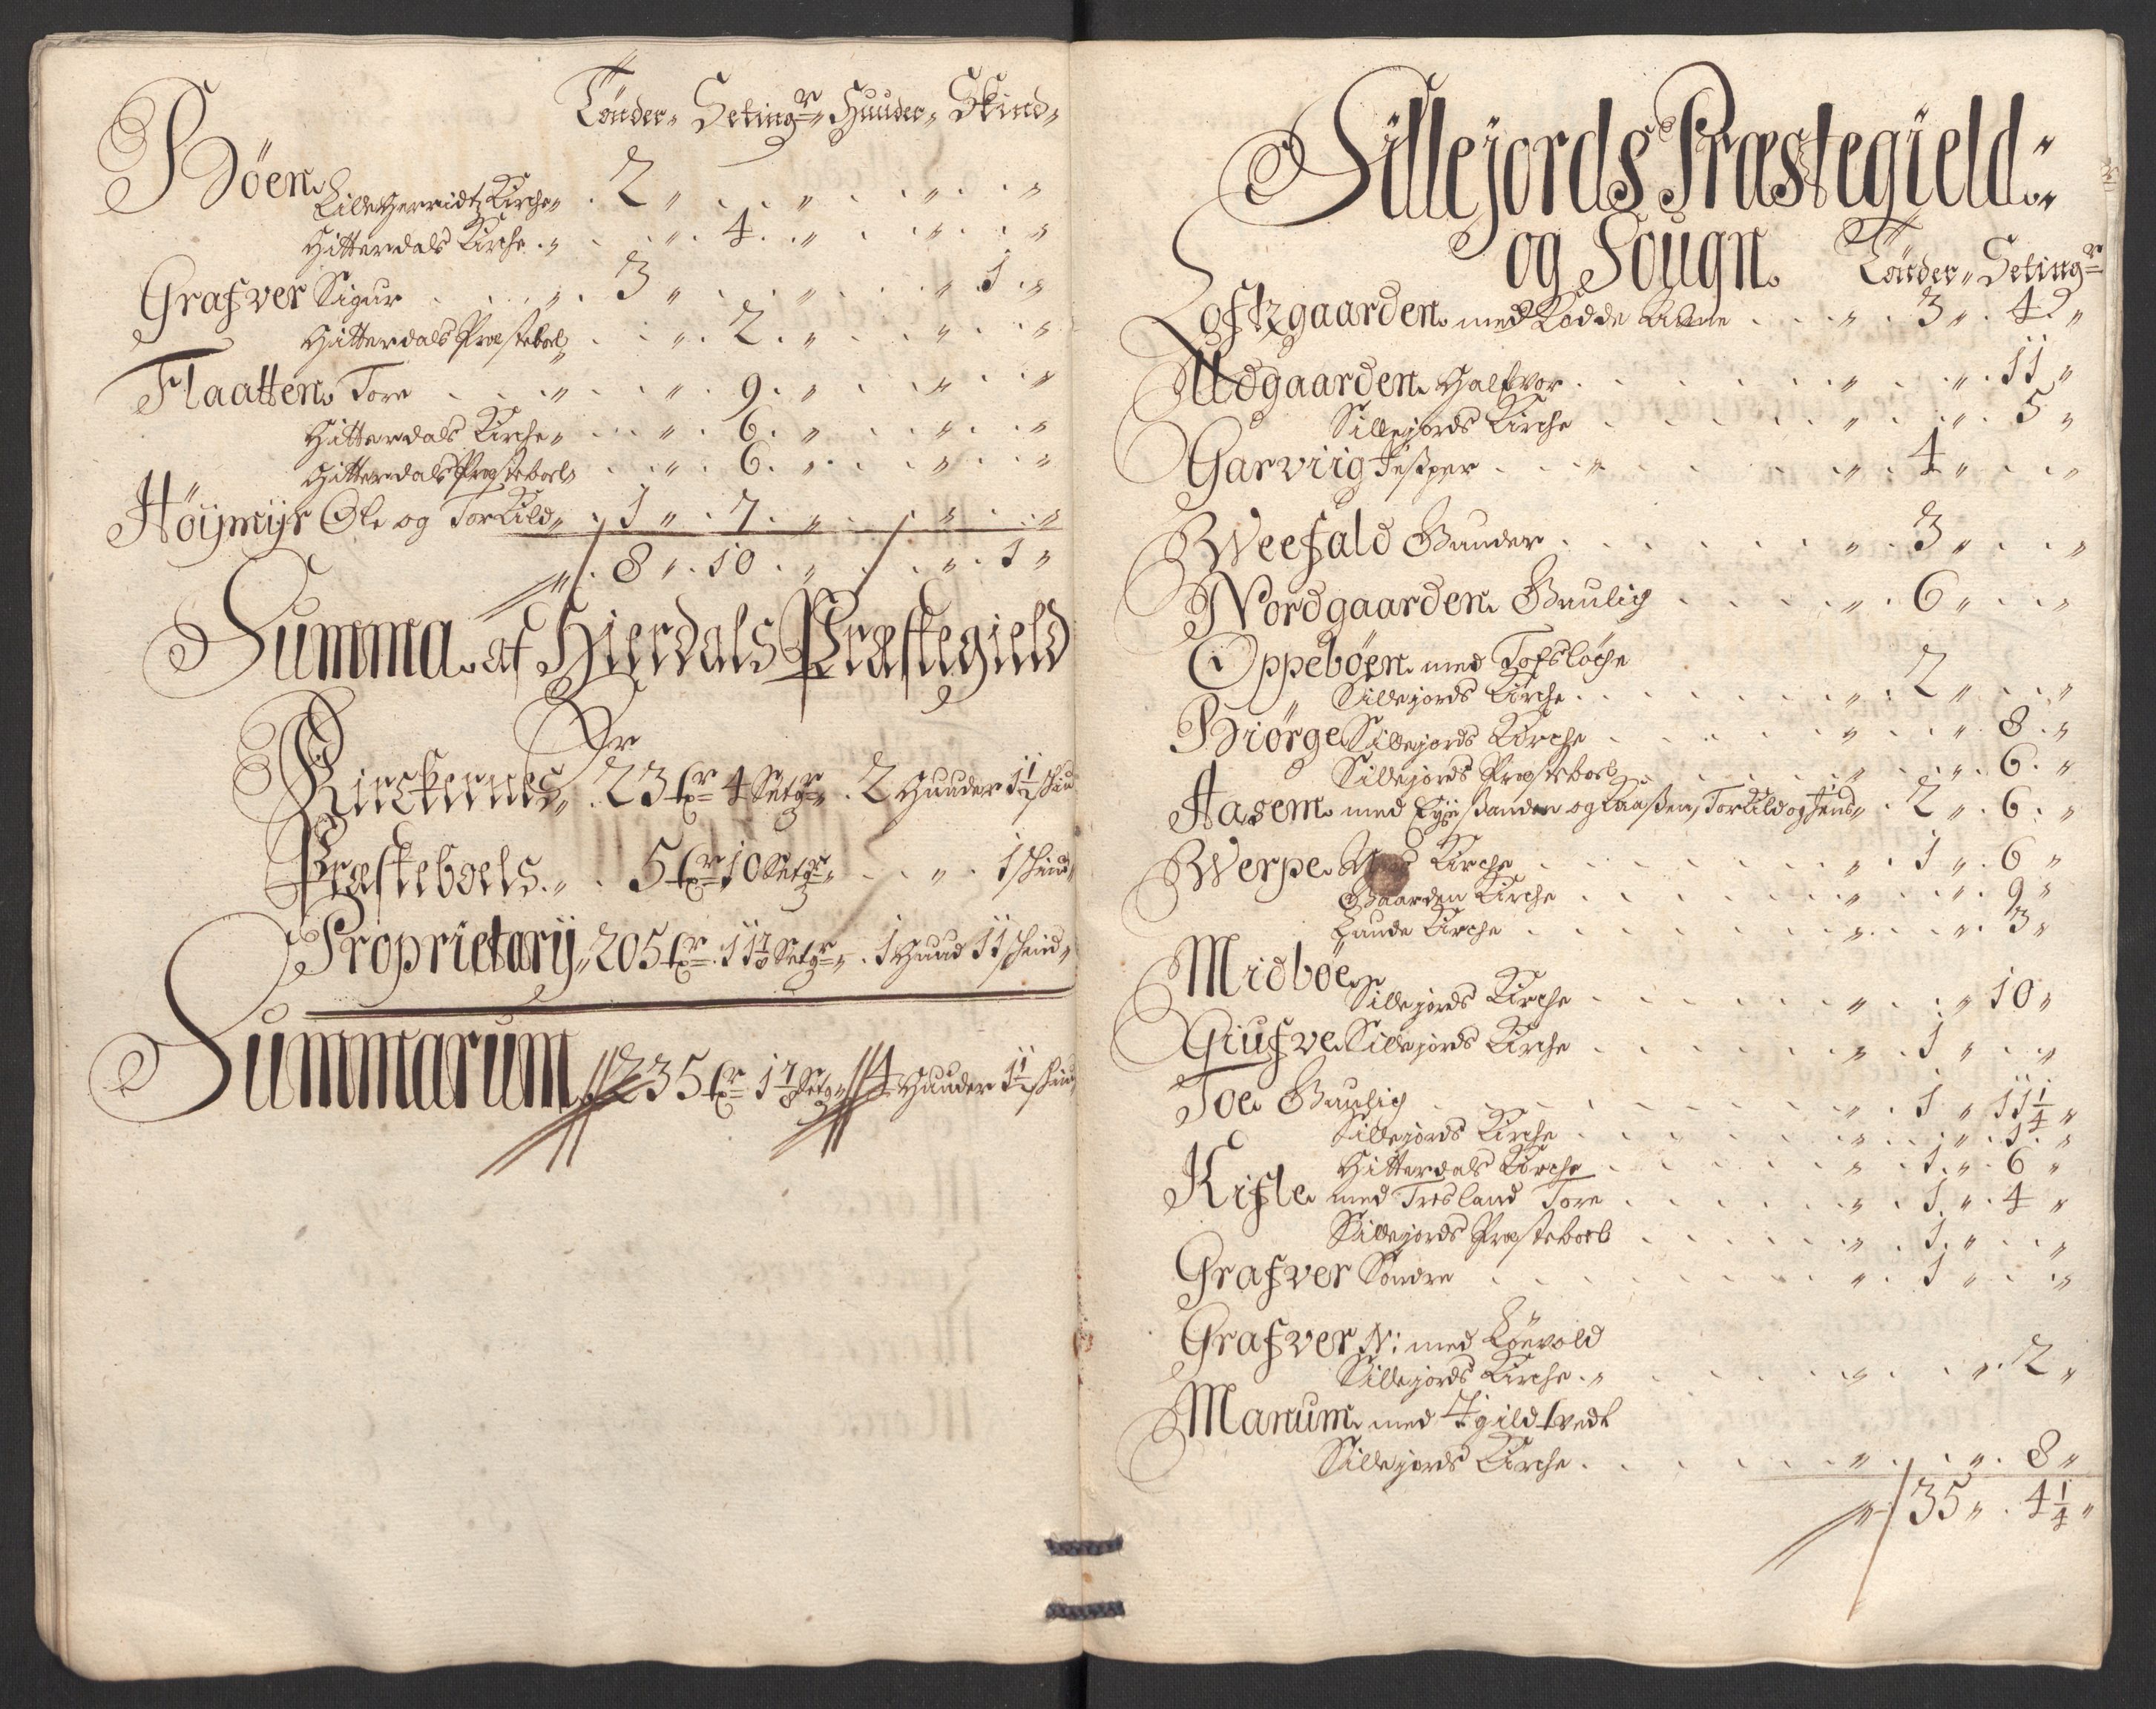 Tönder„ Setingr„ Huuder„ Skind„
Böen
Lilleherridtz Kirche„ . 2 „ . . „ . . „ . . „
Hitterdals Kirche . „ . . „ . 4 . „ . . „ . . „
Grafver Sigur . . . „ . 3 „ . . „ . . „ 1 . „
Hitterdals Præsteboel . . „ . 2 . „ . . „ . . „
Flaatten Tore . . . „ . . „ . 9 . „ . . „ . . „
Hitterdals Kirche„ . . „ . 6 . „ . . „ . . „
Hitterdals Præsteboel„ . . „ . 6 . „ . . „ . . „
Höÿmÿr Ole og Torkild„ . 1 „ . 7 . „ . . „ . . „
„ . 8 „ . 10 . „ . . „ . 1 „
Summa af Hierdals Præstegield
Er
Kirckernes„ . 23 txr 4 Setgr„ . 2 Huuder 1½ skin
Præsteboels . „ . 5 txr 10 Setgr„ . . „ . 1 skind„
Proprietarij„ 205 txr 11 7/8 Setgr„ . 1 Huud 11 skind„
Summarum 235 txr 1 7/8 Setgr„ 4 Huuder 1½ skind
Sillejords Præstegield :
og Sougn Tönder„ Setingr
Loftzgaarden med Kodde . . . „ . 3 „ . 4 „
Udgaarden Halfvor . . . „ . . „ . 11 „
Sillejords Kirche . . . „ . . „ . 5 „
Garviig Jesper . . . „ . . „ . 4 „ . . „
Weefald Gunder . . . „ . 3 „ . . „
Nordgaarden Gunlig . . . „ . 6 „ . . „
Oppeböen med Tofslöche
Sillejords Kirche . . . „ . 2 „ . . „
Biörge Sillejords Kirche . . . „ . . „ 8 . „
Sillejords Præsteboel . . . „ . . „ . 6 . „
Aasem med og Kaasen, Torkild og Jens„ . 2 „ . 6 . „
Werpe Kirche . . . „ . 1 „ . 6 „
Gaarden Kirche . . . „ . . „ . 9 „
Laude Kirche . . . „ . . „ . 3 „
Midböe
Sillejords Kirche . . . „ . . „ 10 „
Giufve Sillejords Kirche . . . „ . 1 „ . . „
Joe Gunlig . . . „ . 1 „ 11¼ „
Sillejords Kirche . . . „ . . „ . 1 . „
Hitterdals Kirche . . . „ . 1 „ . 6 „
Kifle med Tresland Tore . . . „ . 1 „ . 4 „
Sillejords Præsteboel . . . „ . 1 „ . . „
Grafver Söndre . . . „ . 1 „ . . „
Grafver N: med Löevold
Sillejords Kirche . „ . . . „ . . „ . 2 „
Manum med
Sillejords Kirche . . . „ . . „ . 8 „
„ 35 „ . 4¼ „